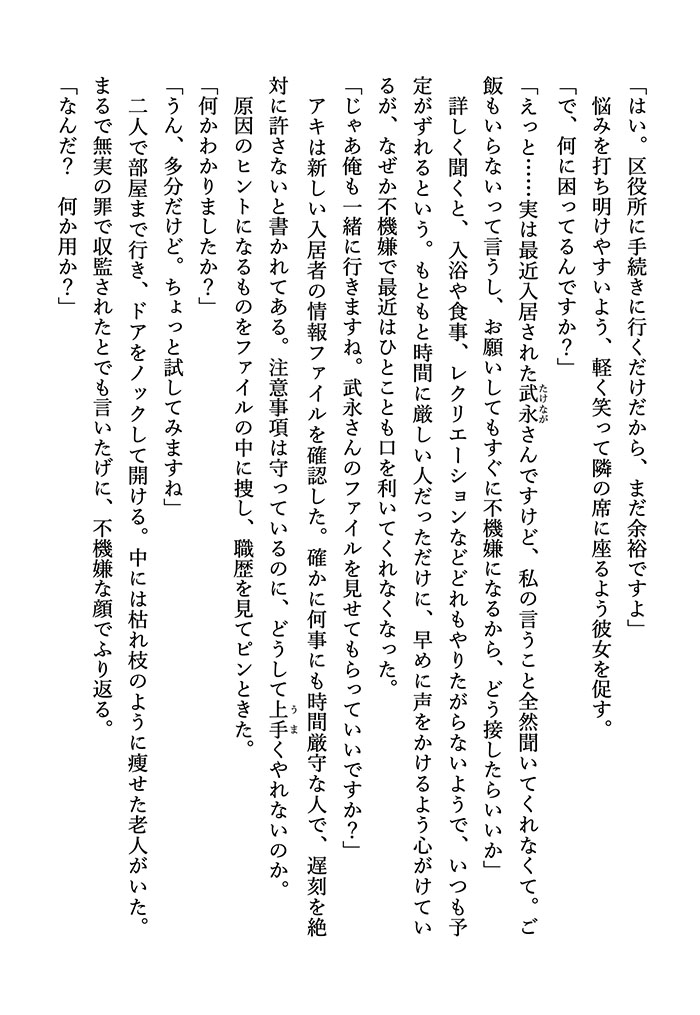 「はい。区役所に手続きに行くだけだから、まだ余裕ですよ」
　悩みを打ち明けやすいよう、軽く笑って隣の席に座るよう彼女を促す。
「で、何に困ってるんですか？」
「えっと……実は最近入居された武永さんですけど、私の言うこと全然聞いてくれなくて。ご
飯もいらないって言うし、お願いしてもすぐに不機嫌になるから、どう接したらいいか」
　詳しく聞くと、入浴や食事、レクリエーションなどどれもやりたがらないようで、いつも予
定がずれるという。もともと時間に厳しい人だっただけに、早めに声をかけるよう心がけてい
るが、なぜか不機嫌で最近はひとことも口を利いてくれなくなった。
「じゃあ俺も一緒に行きますね。武永さんのファイルを見せてもらっていいですか？」
　アキは新しい入居者の情報ファイルを確認した。確かに何事にも時間厳守な人で、遅刻を絶
対に許さないと書かれてある。注意事項は守っているのに、どうして上手くやれないのか。
　原因のヒントになるものをファイルの中に捜し、職歴を見てピンときた。
「何かわかりましたか？」
「うん、多分だけど。ちょっと試してみますね」
　二人で部屋まで行き、ドアをノックして開ける。中には枯れ枝のように痩せた老人がいた。
まるで無実の罪で収監されたとでも言いたげに、不機嫌な顔でふり返る。
「なんだ？　何か用か？」
たけなが
うま